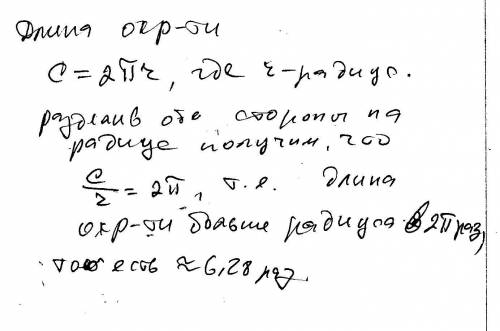 Длина окр-ти
C = 2πr, где r-радиус.
разделив обе стороны на
радиус получим, что
C/r = 2π, т.е. длина
окр-ти больше радиуса в 2π раз,
то есть ≈ 6,28 раз.